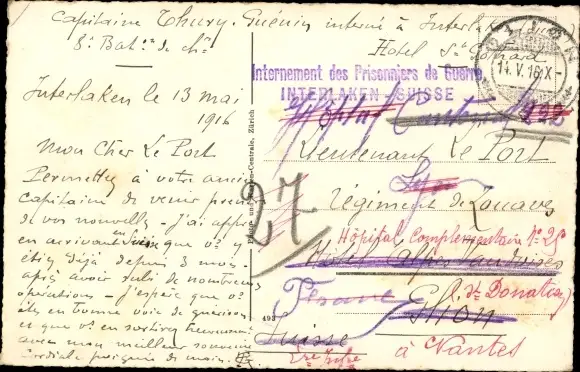 Capitaine Thury-Guénin interné à Interlaken
8e Bat.on de ch.
Hotel St Gothard
Internement des Prisonniers de Guerre
INTERLAKEN-SUISSE
14.V.16.X-
Interlaken le 13 mai
1916
Mon Cher Le Port
Permettez à votre ancien
capitaine de venir prendre
de vos nouvelles - J'ai appris
en arrivant en Suisse que vs y
étiez déjà depuis 3 mois
après avoir subi de nombreuses
opérations - J'espère que vs
êtes en bonne voie de guérison
et que vs en sortirez
avec mon meilleur souvenir
cordiale poignée de main.
Lieutenant Le Port
Régiment de Zouaves
27
Hôpital Complémentaire No 25
Hôtel
(St Donatien)
493
Suisse
à Nantes